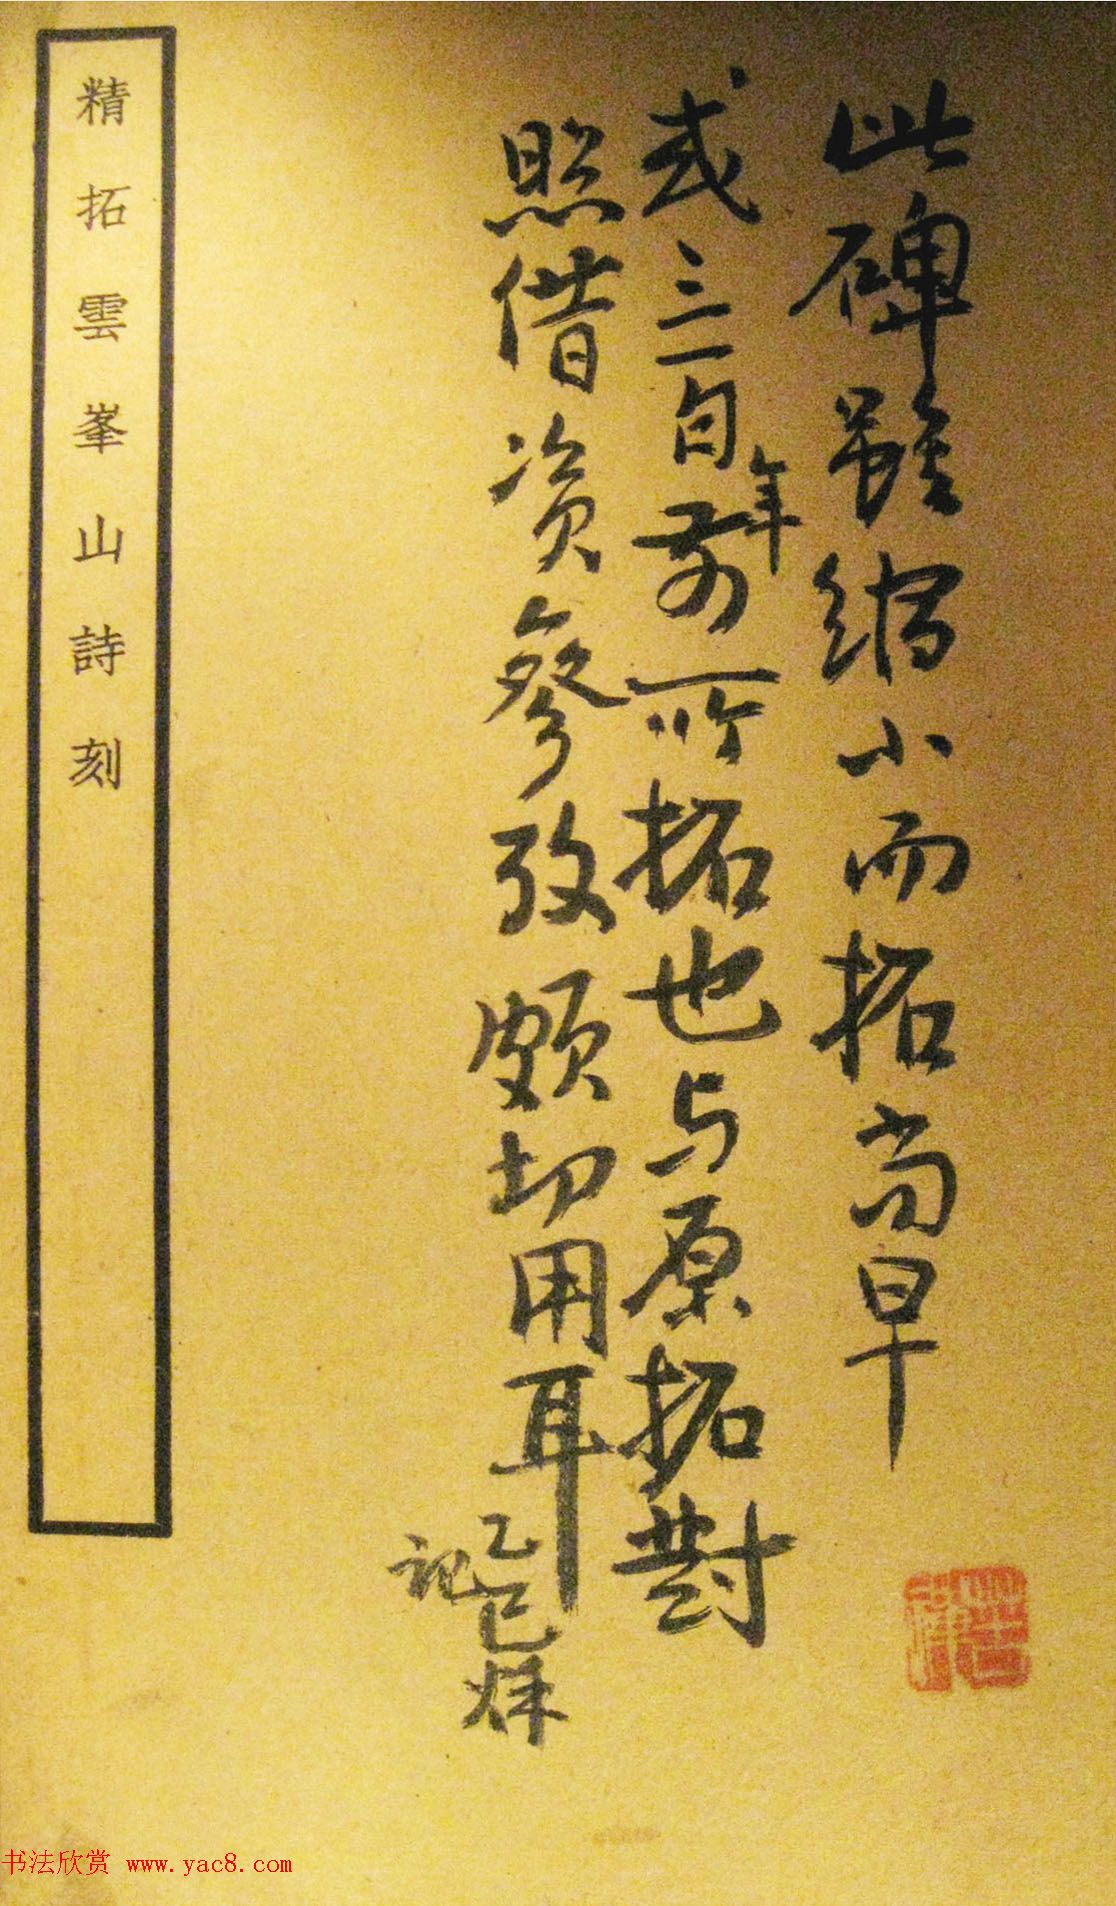 此碑雖縮小而拓尚早
或三百年前所拓也与原拓對
照借資參攷頗切用耳
乙巳秌
記
精拓雲峯山詩刻
书法欣赏 www.yac8.com